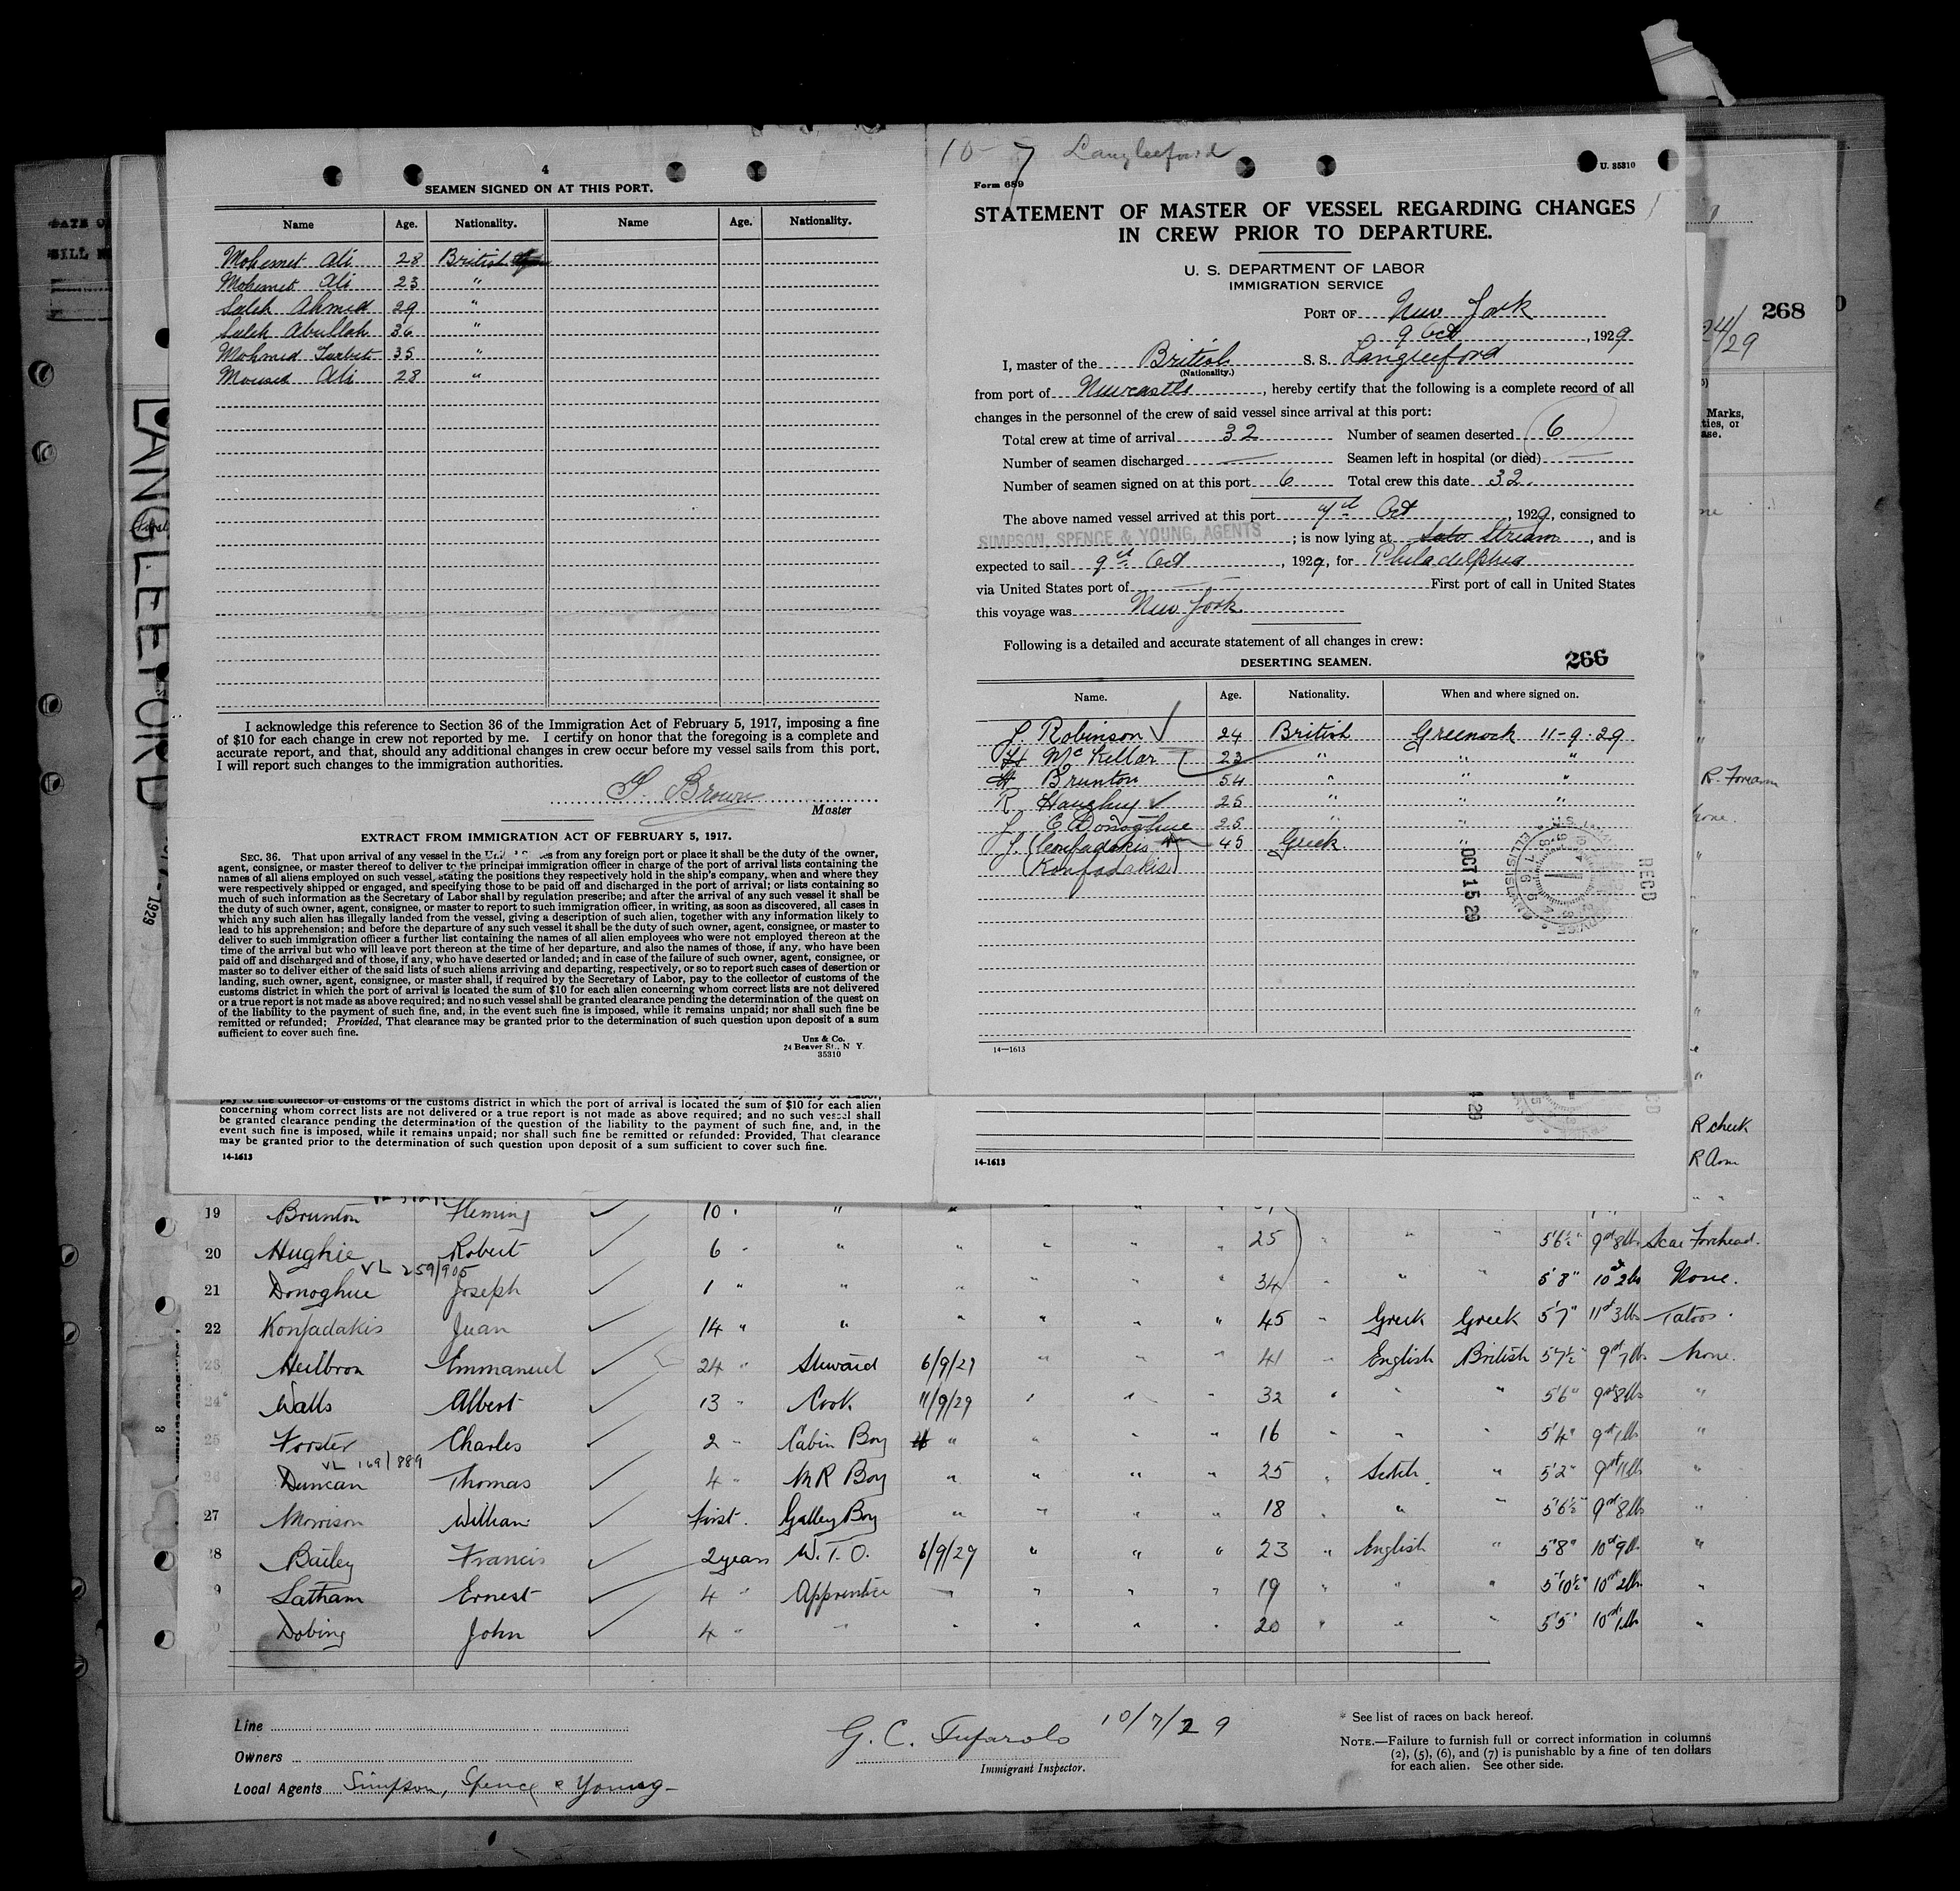 4
SEAMEN SIGNED ON AT THIS PORT.
Name Age. Nationality. Name Age. Nationality.
Mohemet Ali 28 British
Mohemet Ali 23 "
Saleh Ahmed 29 "
Saleh Abullah 36 "
Mohmed 35 "
Ali 28 "
I acknowledge this reference to Section 36 of the Immigration Act of February 5, 1917, imposing a fine
of $10 for each change in crew not reported by me. I certify on honor that the foregoing is a complete and
accurate report, and that, should any additional changes in crew occur before my vessel sails from this port,
I will report such changes to the immigration authorities.
Brown
Master
EXTRACT FROM IMMIGRATION ACT OF FEBRUARY 5, 1917.
SEC. 36. That upon arrival of any vessel in the from any foreign port or place it shall be the duty of the owner,
agent, consignee, or master thereof to deliver to the principal immigration officer in charge of the port of arrival lists containing the
names of all aliens employed on such vessel, stating the positions they respectively hold in the ship's company, when and where they
were respectively shipped or engaged, and specifying those to be paid off and discharged in the port of arrival; or lists containing so
much of such information as the Secretary of Labor shall by regulation prescribe; and after the arrival of any such vessel it shall be
the duty of such owner, agent, consignee, or master to report to such immigration officer, in writing, as soon as discovered, all cases in
which any such alien has illegally landed from the vessel, giving a description of such alien, together with any information likely to
lead to his apprehension; and before the departure of any such vessel it shall be the duty of such owner, agent, consignee, or master to
deliver to such immigration officer a further list containing the names of all alien employees who were not employed thereon at the
time of the arrival but who will leave port thereon at the time of her departure, and also the names of those, if any, who have been
paid off and discharged and of those, if any, who have deserted or landed; and in case of the failure of such owner, agent, consignee, or
master so to deliver either of the said lists of such aliens arriving and departing, respectively, or so to report such cases of desertion or
landing, such owner, agent, consignee, or master shall, if required by the Secretary of Labor, pay to the collector of customs of the
customs district in which the port of arrival is located the sum of $10 for each alien concerning whom correct lists are not delivered
or a true report is not made as above required; and no such vessel shall be granted clearance pending the determination of the quest on
of the liability to the payment of such fine, and, in the event such fine is imposed, while it remains unpaid; nor shall such fine be
remitted or refunded; Provided, That clearance may be granted prior to the determination of such question upon deposit of a sum
sufficient to cover such fine.
Unz & Co.
24 Beaver St., N. Y.
35310
10-7 Langleeford
Form 689
U. 35310
STATEMENT OF MASTER OF VESSEL REGARDING CHANGES
IN CREW PRIOR TO DEPARTURE.
U. S. DEPARTMENT OF LABOR
IMMIGRATION SERVICE
PORT OF New York
9 Oct, 1929
I, master of the British S. S. Langleeford
(Nationality.)
from port of Newcastle, hereby certify that the following is a complete record of all
changes in the personnel of the crew of said vessel since arrival at this port:
Total crew at time of arrival 32 Number of seamen deserted 6
Number of seamen discharged — Seamen left in hospital (or died) —
Number of seamen signed on at this port 6 Total crew this date 32.
The above named vessel arrived at this port Oct, 1929, consigned to
SIMPSON, SPENCE & YOUNG, AGENTS; is now lying at Stream, and is
expected to sail 9th Oct, 1929, for Philadelphia
via United States port of — First port of call in United States
this voyage was New York.
Following is a detailed and accurate statement of all changes in crew:
DESERTING SEAMEN. 266
Name. Age. Nationality. When and where signed on.
J Robinson ✓ 24 British Greenock 11-9-29
McKellar 23 " " "
Brunton 54 " " "
R Haughey ✓ 25 " " "
J Donoghue 25 " "
J. (Confadakis 45 Greek
(Konfadakis)
OCT 15 29
RECD
ELLIS IS
14—1613
pay to the collector of customs of the customs district in which the port of arrival is located the sum of $10 for each alien
concerning whom correct lists are not delivered or a true report is not made as above required; and no such vessel shall
be granted clearance pending the determination of the question of the liability to the payment of such fine, and, in the
event such fine is imposed, while it remains unpaid; nor shall such fine be remitted or refunded: Provided, That clearance
may be granted prior to the determination of such question upon deposit of a sum sufficient to cover such fine.
14-1613
14-1613
LANGLEEFORD
1929
268
Marks,
R. Forearm
R cheek
R Arm
19 Brunton Fleming ✓ 10 " "
20 Hughie Robert ✓ 6 " " " " " " 25 " " " 5'6½" 9st 8lb Scar Forehead.
VL 259/905
21 Donoghue Joseph ✓ 1 " " " " " " 34 " " " 5'8" 10st 2lbs None.
22 Konfadakis Juan ✓ 14 " " " " " " 45 " Greek Greek 5'7" 11st 3lbs Tatoos.
23 Heilbron Emmanuel ✓ 24 " Steward 6/9/29 " " " 41 " English British 5'7½" 9st 7lb None.
24 Walls Albert ✓ 13 " Cook 11/9/29 " " " 32 " " " 5'6" 9st 8lbs "
25 Forster Charles ✓ 2 " Cabin Boy " " " " 16 " " " 5'4" 9st 1lb "
VL 169/889
26 Duncan Thomas ✓ 4 " M R Boy " " " " 25 " Scotch " 5'2" 9st 11lb "
27 Morrison William ✓ First. Galley Boy " " " " 18 " " " 5'6½" 9st 8lb "
28 Bailey Francis ✓ 2 years W. T. O. 6/9/29 " " " 23 " English " 5'8" 10st 9lb "
9 Latham Ernest ✓ 4 " Apprentice " " " " 19 " " " 5'10½" 10st 2lb "
Dobing John ✓ 4 " " " " " " 20 " " " 5'5" 10st 1lb "
Line
Owners
Local Agents Simpson, Spence & Young
G. C. Tufarolo 10/7/29
Immigrant Inspector.
* See list of races on back hereof.
NOTE.—Failure to furnish full or correct information in columns
(2), (5), (6), and (7) is punishable by a fine of ten dollars
for each alien. See other side.